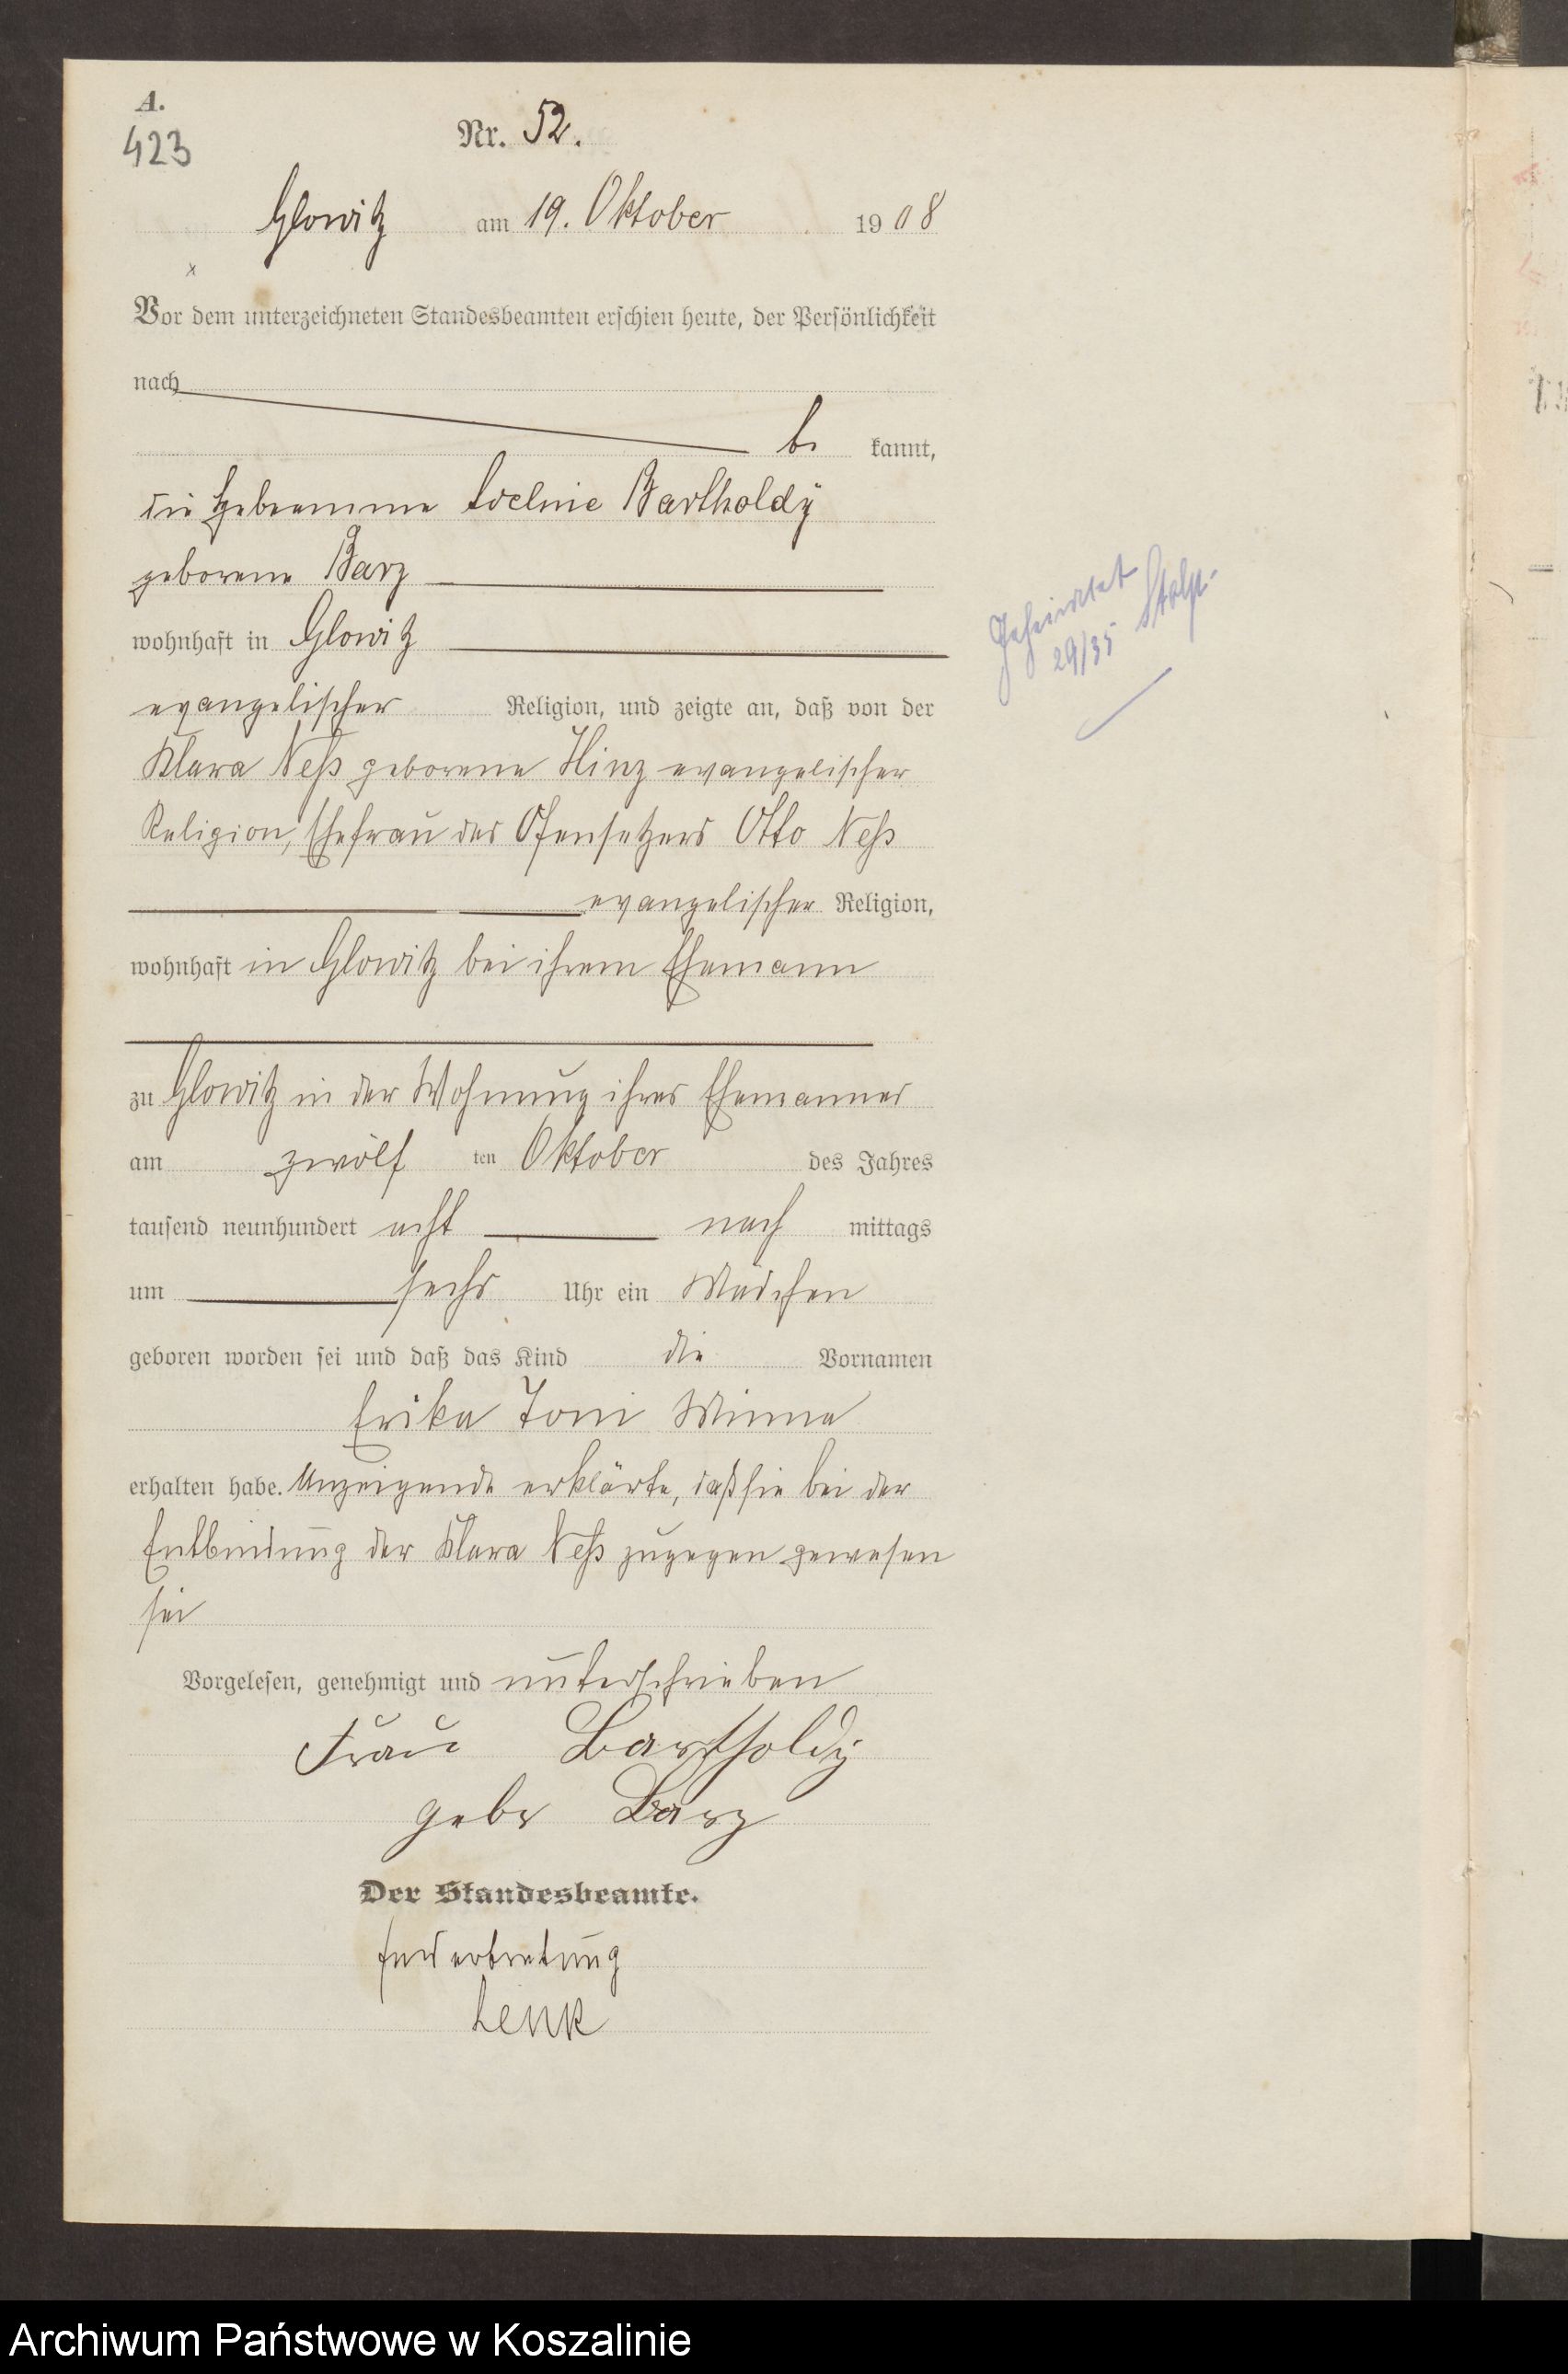 A.
423
Nr. 52.
Glowitz am 19. Oktober 1908
Vor dem unterzeichneten Standesbeamten erschien heute, der Persönlichkeit
nach
be kannt,
die Hebeamme Bartholdy
geborene Barz
wohnhaft in Glowitz
evangelischer Religion, und zeigte an, daß von der
Klara Neß geborene Hinz evangelischer
Religion, Ehefrau des Ofensetzers Otto Neß
evangelischer Religion,
wohnhaft in Glowitz bei ihrem Ehemann
zu Glowitz in der Wohnung ihres Ehemannes
am zwölf ten Oktober des Jahres
tausend neunhundert acht nach mittags
um sechs Uhr ein Mädchen
geboren worden sei und daß das Kind die Vornamen
Erika Toni Minna
erhalten habe. Anzeigende erklärte, daß sie bei der
Entbindung der Klara Neß zugegen gewesen
sei
Geheiratet
29/35 Stolp.
Vorgelesen, genehmigt und unterschrieben
Frau Bartholdy
gebr Barz
Der Standesbeamte.
In Vertretung
Lenk
Archiwum Państwowe w Koszalinie